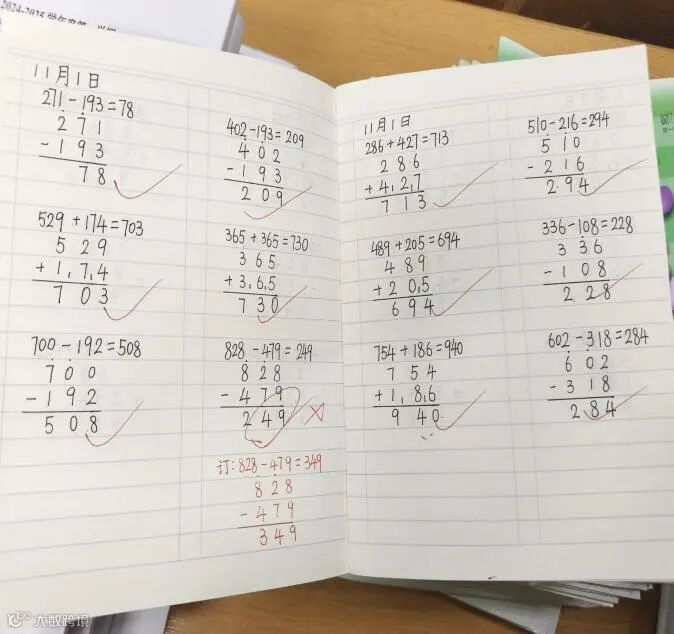 2024-2025学年度第一学期
11月1日
271-193=78
271
-193
78
402-193=209
402
-193
209
529+174=703
529
+174
703
365+365=730
365
+365
730
700-192=508
700
-192
508
828-479=249
828
-479
249
订:828-479=349
828
-479
349
11月1日
286+427=713
286
+427
713
510-216=294
510
-216
294
489+205=694
489
+205
694
336-108=228
336
-108
228
754+186=940
754
+186
940
602-318=284
602
-318
284
大数跨境